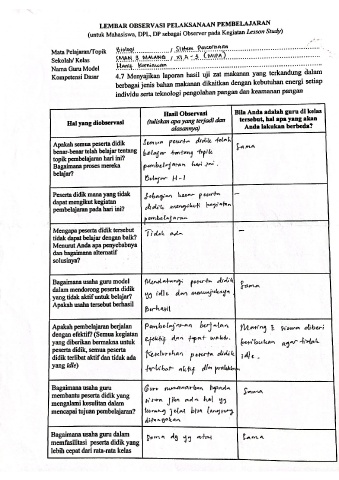 LEMBAR OBSERVASI PELAKSANAAN PEMBELAJARAN
(untuk Mahasiswa, DPL, DP sebagai Observer pada Kegiatan Lesson Study)
Mata Pelajaran/Topik : Biologi / Sistem Pencernaan
Sekolah/ Kelas : SMAN 8 MALANG / XI A-3 (MIPA)
Nama Guru Model :
Kompetensi Dasar : 4.7 Menyajikan laporan hasil uji zat makanan yang terkandung dalam
berbagai jenis bahan makanan dikaitkan dengan kebutuhan energi setiap
individu serta teknologi pengolahan pangan dan keamanan pangan
Hal yang diobservasi
Hasil Observasi
(tuliskan apa yang terjadi dan
alasannya)
Bila Anda adalah guru di kelas
tersebut, hal apa yang akan
Anda lakukan berbeda?
Apakah semua peserta didik
benar-benar telah belajar tentang
topik pembelajaran hari ini?
Bagaimana proses mereka
belajar?
Semua peserta didik telah
belajar tentang topik
pembelajaran hari ini.
Belajar H-1
Sama
Peserta didik mana yang tidak
dapat mengikuti kegiatan
pembelajaran pada hari ini?
Sebagian besar peserta
didik mengikuti kegiatan
pembelajaran
–
Mengapa peserta didik tersebut
tidak dapat belajar dengan baik?
Menurut Anda apa penyebabnya
dan bagaimana alternatif
solusinya?
Tidak ada
–
Bagaimana usaha guru model
dalam mendorong peserta didik
yang tidak aktif untuk belajar?
Apakah usaha tersebut berhasil
Mendatangi peserta didik
yg idle dan
Berhasil
Sama
Apakah pembelajaran berjalan
dengan efektif? (Semua kegiatan
yang diberikan bermakna untuk
peserta didik, semua peserta
didik terlibat aktif dan tidak ada
yang idle)
Pembelajaran berjalan
efektif dan tepat waktu.
Keseluruhan peserta didik
terlibat aktif dlm praktikum
Masing2 siswa diberi
agar tidak
idle.
Bagaimana usaha guru
membantu peserta didik yang
mengalami kesulitan dalam
mencapai tujuan pembelajaran?
Guru menawarkan kepada
siswa jika ada hal yg
kurang jelas bisa langsung
ditanyakan
Sama
Bagaimana usaha guru dalam
memfasilitasi peserta didik yang
lebih cepat dari rata-rata kelas
Sama dg yg atas
Sama